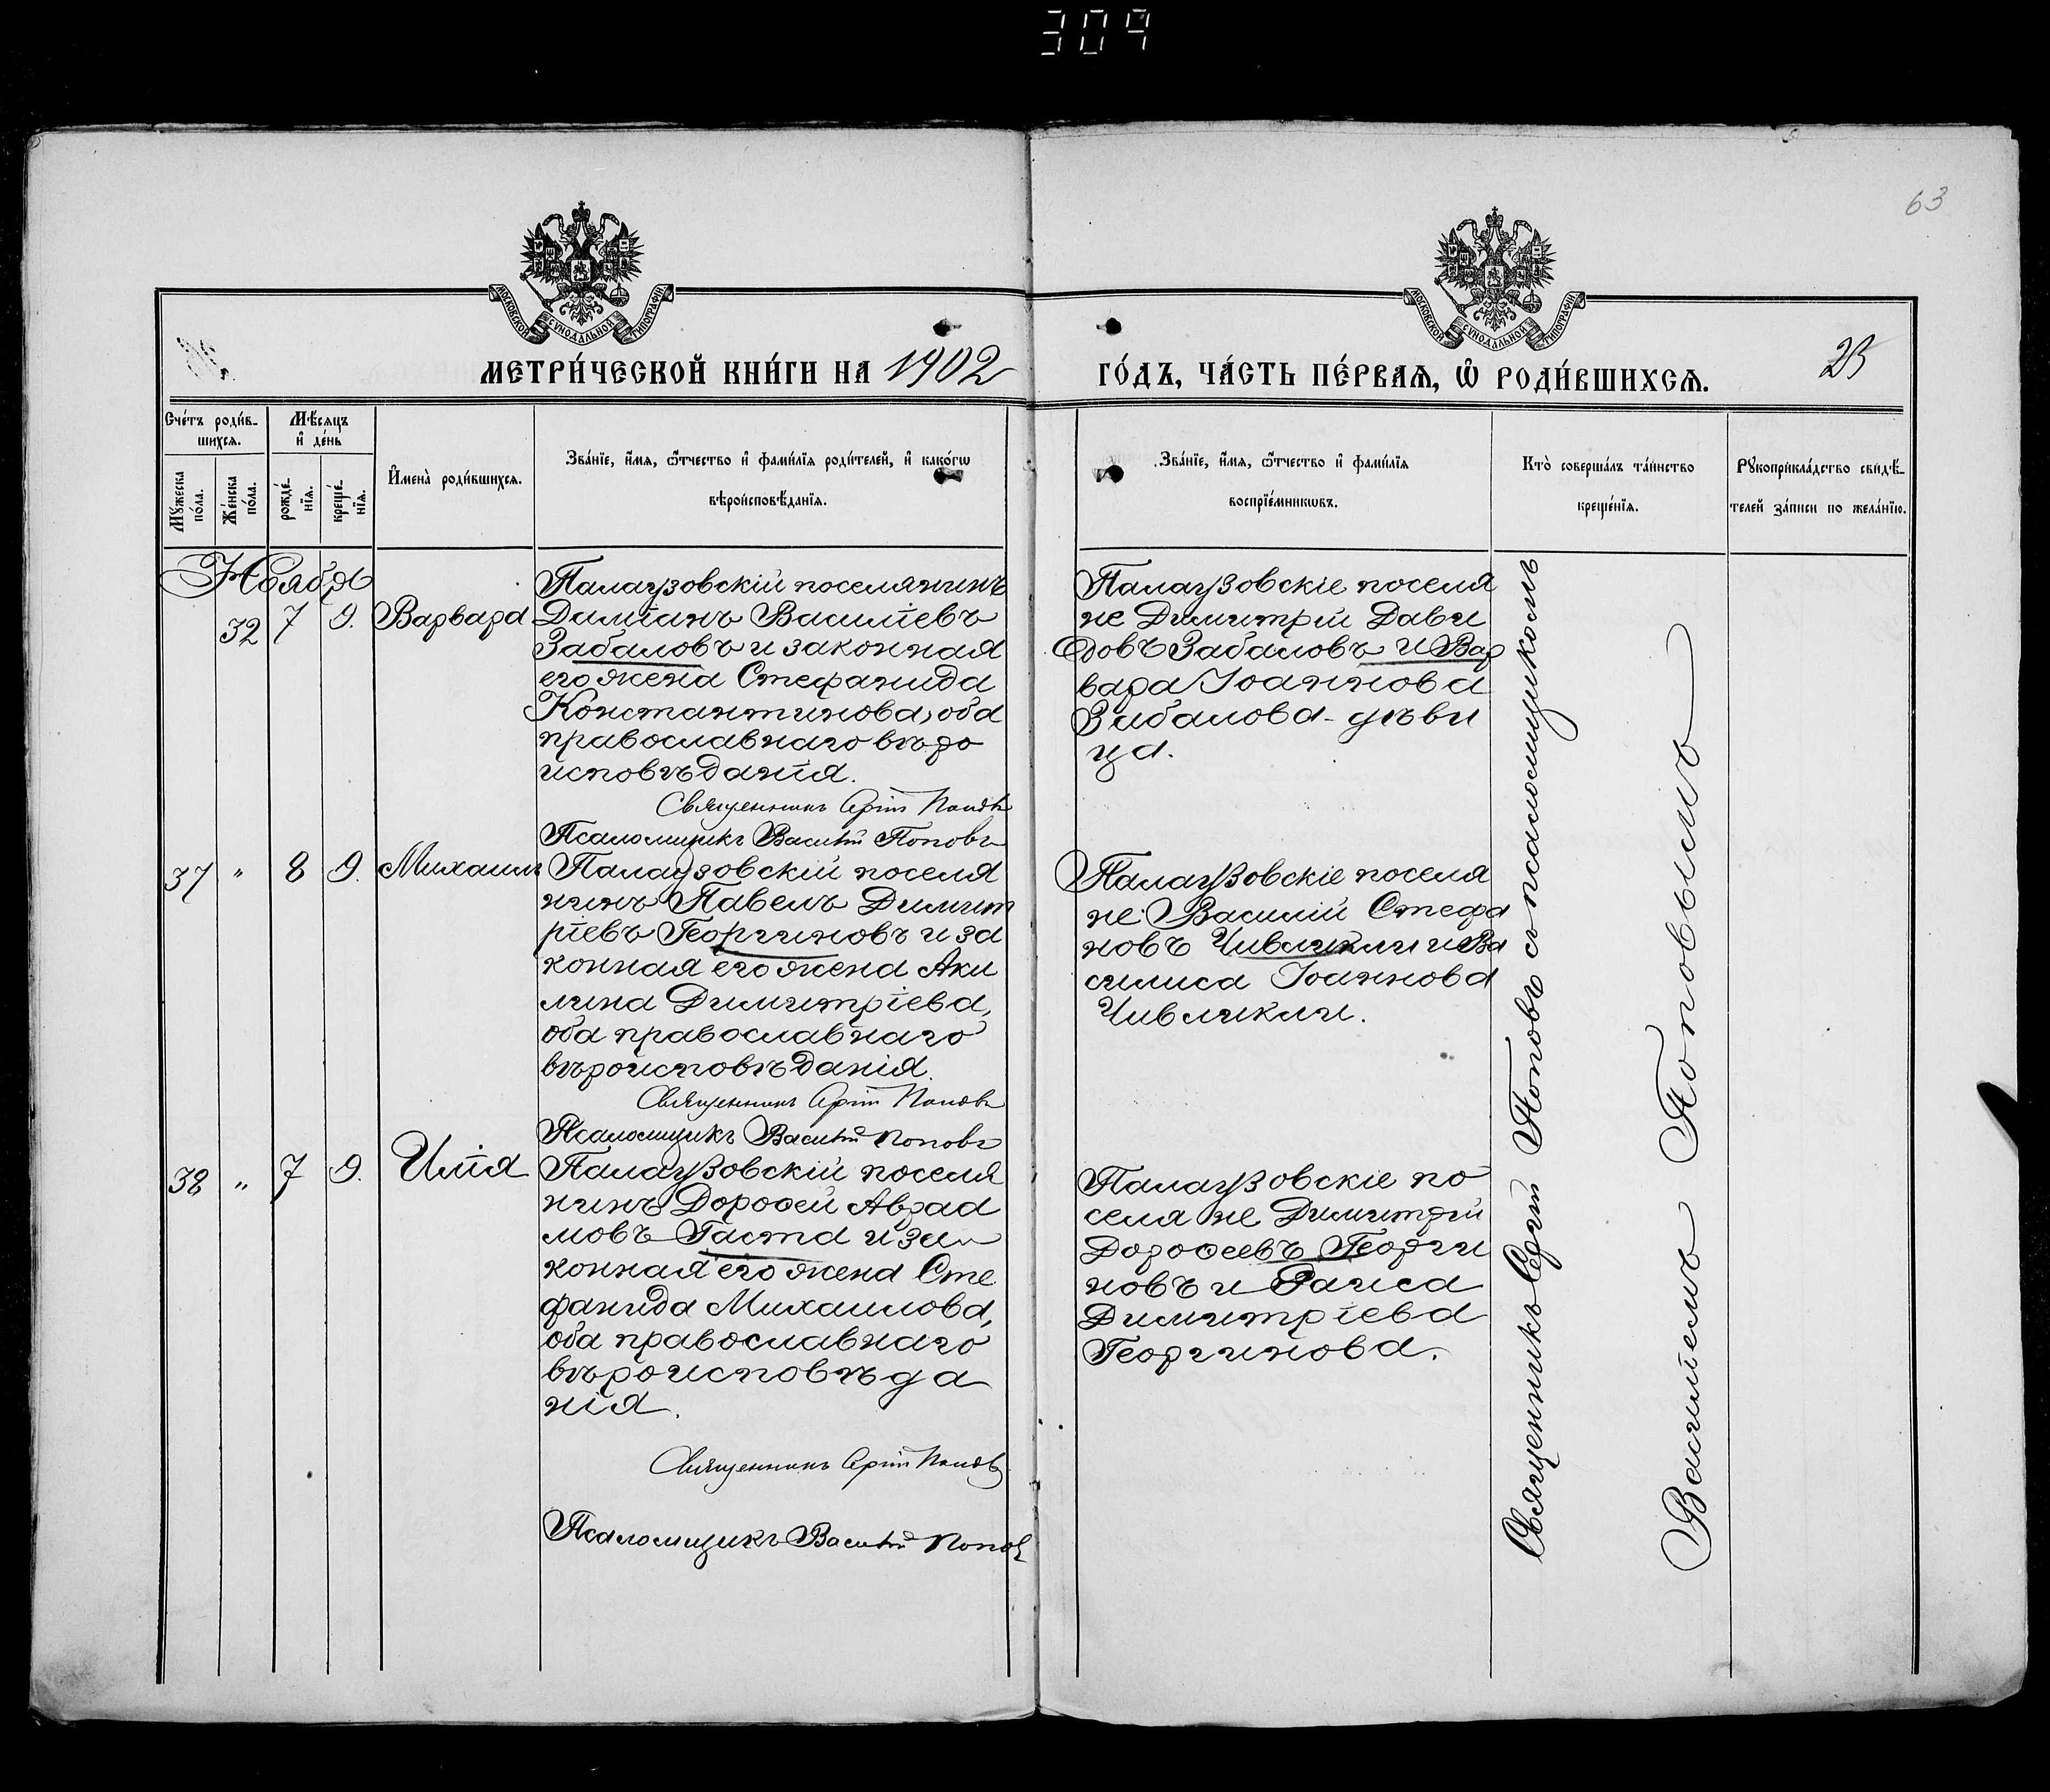 309
63
МОСКОВСКОЙ СѴНОДАЛЬНОЙ ТИПОГРАФІИ
МОСКОВСКОЙ СѴНОДАЛЬНОЙ ТИПОГРАФІИ
МЕТРИ́ЧЕСКОЙ КНИ́ГИ НА 1902
ГО́ДЪ, ЧА́СТЬ ПЕ́РВАѦ, Ѽ РОДИ́ВШИХСѦ.
Счетъ роди́в-
шихсѧ.
Мꙋ́жеска
по́ла.
Же́нска
по́ла.
Мѣ́сѧцъ
и҆ де́нь
рожде́-
нїѧ.
креще́-
нїѧ.
И҆мена̀ роди́вшихсѧ.
Зва́нїе, и҆́мѧ, ѻ҆́тчество и҆ фами́лїѧ роди́телей, и҆ како́гѡ
вѣроисповѣ́данїѧ.
Зва́нїе, и҆́мѧ, ѻ҆́тчество и҆ фами́лїѧ
воспрїе́мникѡвъ.
Кто̀ соверша́лъ та́инство
креще́нїѧ.
Рꙋкоприкла́дство свидѣ́-
телей за́писи по жела́нїю.
Ноября
32 7 9. Варвара
Палаузовскій поселянинъ
Даміанъ Василіевъ
Забаловъ и законная
его жена Стефанида
Константинова, оба
православнаго вѣро
исповѣданія.
Священникъ Сергій Поповъ
Псаломщикъ Василій Поповъ
Палаузовскіе поселя
не Димитрій Дави
довъ Забаловъ и Вар
вара Іоаннова
Забалова - дѣви
ца.
37 " 8 9. Михаилъ
Палаузовскій поселя
нинъ Павелъ Димит
ріевъ Георгиновъ и за
конная его жена Аки
лина Димитріева,
оба православнаго
вѣроисповѣданія.
Священникъ Сергій Поповъ
Псаломщикъ Василій Поповъ
Палаузовскіе поселя
не Василій Стефа
новъ Чивликли и Ва
силиса Іоаннова
Чивликли.
38 " 7 9. Илія
Палаузовскій поселя
нинъ Дорофей Авра
мовъ Гаста и за
конная его жена Сте
фанида Михаилова,
оба православнаго
вѣроисповѣда
нія.
Священникъ Сергій Поповъ
Псаломщикъ Василій Поповъ
Палаузовскіе по
селяне Димитрій
Дорофеевъ Георги
новъ и Раиса
Димитріева
Георгинова.
Священникъ Сергій Поповъ съ псаломщикомъ
Василіемъ Поповымъ